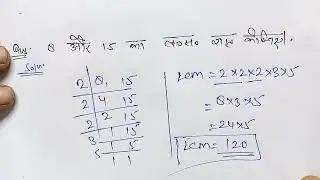 Que. 8 और 15 का ल०स० ज्ञात कीजिए।
Soln.
2 8, 15
2 4 15
2 2 15
3 1 15
5 1 5
1 1
LCM = 2×2×2×3×5
= 8×3×5
= 24×5
LCM = 120